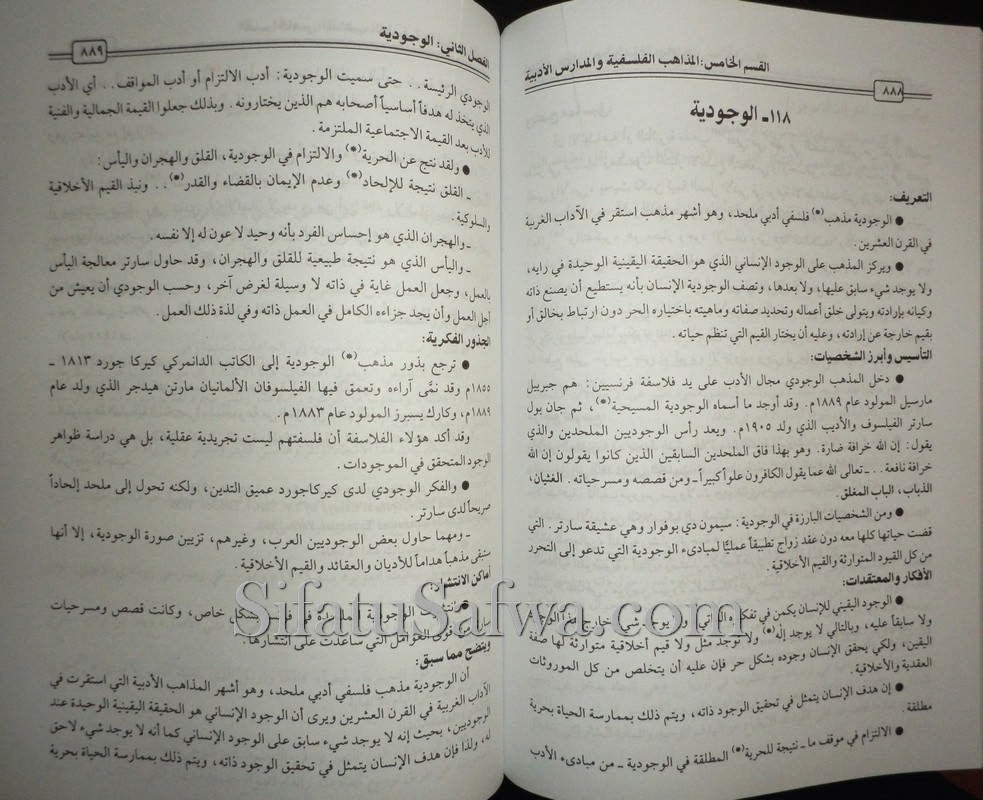 القسم الخامس: المذاهب الفلسفية والمدارس الأدبية
٨٨٨
١١٨ـ الوجودية
التعريف:
● الوجودية مذهب(*) فلسفي أدبي ملحد، وهو أشهر مذهب استقر في الآداب الغربية
في القرن العشرين.
● ويركز المذهب على الوجود الإنساني الذي هو الحقيقة اليقينية الوحيدة في رأيه،
ولا يوجد شيء سابق عليها، ولا بعدها، وتصف الوجودية الإنسان بأنه يستطيع أن يصنع ذاته
وكيانه بإرادته ويتولى خلق أعماله وتحديد صفاته وماهيته باختياره الحر دون ارتباط بخالق أو
بقيم خارجة عن إرادته، وعليه أن يختار القيم التي تنظم حياته.
التأسيس وأبرز الشخصيات:
● دخل المذهب الوجودي مجال الأدب على يد فلاسفة فرنسيين: هم جبرييل
مارسيل المولود عام ١٨٨٩م. وقد أوجد ما أسماه الوجودية المسيحية(*)، ثم جان بول
سارتر الفيلسوف والأديب الذي ولد ١٩٠٥م. ويعد رأس الوجوديين الملحدين والذي
يقول: إن الله خرافة ضارة. وهو بهذا فاق الملحدين السابقين الذين كانوا يقولون إن الله
خرافة نافعة.. ـ تعالى الله عما يقول الكافرون علواً كبيراً ـ ومن قصصه ومسرحياته. الغثيان،
الذباب، الباب المغلق.
● ومن الشخصيات البارزة في الوجودية: سيمون دي بوفوار وهي عشيقة سارتر. التي
قضت حياتها كلها معه دون عقد زواج تطبيقاً عمليًّا لمبادىء الوجودية التي تدعو إلى التحرر
من كل القيود المتوارثة والقيم الأخلاقية.
الأفكار والمعتقدات:
● الوجود اليقيني للإنسان يكمن في تفكيره الذاتي، ولا يوجد شيء خارج هذا الوجود
ولا سابقاً عليه، وبالتالي لا يوجد إله(*) ولا توجد مثل ولا قيم أخلاقية متوارثة لها صفة
اليقين، ولكي يحقق الإنسان وجوده بشكل حر فإن عليه أن يتخلص من كل الموروثات
العقدية والأخلاقية.
● إن هدف الإنسان يتمثل في تحقيق الوجود ذاته، ويتم ذلك بممارسة الحياة بحرية
مطلقة.
● الالتزام في موقف ما ـ نتيجة للحرية(*) المطلقة في الوجودية ـ من مبادىء الأدب
الفصل الثاني: الوجودية
٨٨٩
الوجودي الرئيسة.. حتى سميت الوجودية: أدب الالتزام أو أدب المواقف.. أي الأدب
الذي يتخذ له هدفاً أساسياً أصحابه هم الذين يختارونه. وبذلك جعلوا القيمة الجمالية والفنية
للأدب بعد القيمة الاجتماعية الملتزمة.
● ولقد نتج عن الحرية(*) والالتزام في الوجودية، القلق والهجران واليأس:
ـ القلق نتيجة للإلحاد(*) وعدم الإيمان بالقضاء والقدر(*).. ونبذ القيم الأخلاقية
والسلوكية.
ـ والهجران الذي هو إحساس الفرد بأنه وحيد لا عون له إلا نفسه.
ـ واليأس الذي هو نتيجة طبيعية للقلق والهجران، وقد حاول سارتر معالجة اليأس
بالعمل، وجعل العمل غاية في ذاته لا وسيلة لغرض آخر، وحسب الوجودي أن يعيش من
أجل العمل وأن يجد جزاءه الكامل في العمل ذاته وفي لذة ذلك العمل.
الجذور الفكرية:
● ترجع بذور مذهب(*) الوجودية إلى الكاتب الدانمركي كيركا جورد ١٨١٣ ـ
١٨٥٥م وقد نمَّى آراءه وتعمق فيها الفيلسوفان الألمانيان مارتن هيدجر الذي ولد عام
١٨٨٩م، وكارك يسبرز المولود عام ١٨٨٣م.
وقد أكد هؤلاء الفلاسفة أن فلسفتهم ليست تجريدية عقلية، بل هي دراسة ظواهر
الوجود المتحقق في الموجودات.
● والفكر الوجودي لدى كيركاجورد عميق التدين، ولكنه تحول إلى ملحد إلحاداً
صريحاً لدى سارتر.
ـ ومهما حاول بعض الوجوديين العرب، وغيرهم، تزيين صورة الوجودية، إلا أنها
ستبقى مذهباً هداماً للأديان والعقائد والقيم الأخلاقية.
أماكن الانتشار:
● انتشرت الوجودية الملحدة في فرنسا بشكل خاص، وكانت قصص ومسرحيات
سارتر من أقوى العوامل التي ساعدت على انتشارها.
ويتضح مما سبق:
أن الوجودية مذهب فلسفي أدبي ملحد، وهو أشهر المذاهب الأدبية التي استقرت في
الآداب الغربية في القرن العشرين ويرى أن الوجود الإنساني هو الحقيقة اليقينية الوحيدة عند
الوجوديين، بحيث إنه لا يوجد شيء سابق على الوجود الإنساني كما أنه لا يوجد شيء لاحق
له، ولذا فإن هدف الإنسان يتمثل في تحقيق الوجود ذاته، ويتم ذلك بممارسة الحياة بحرية
SifatuSafwa.com